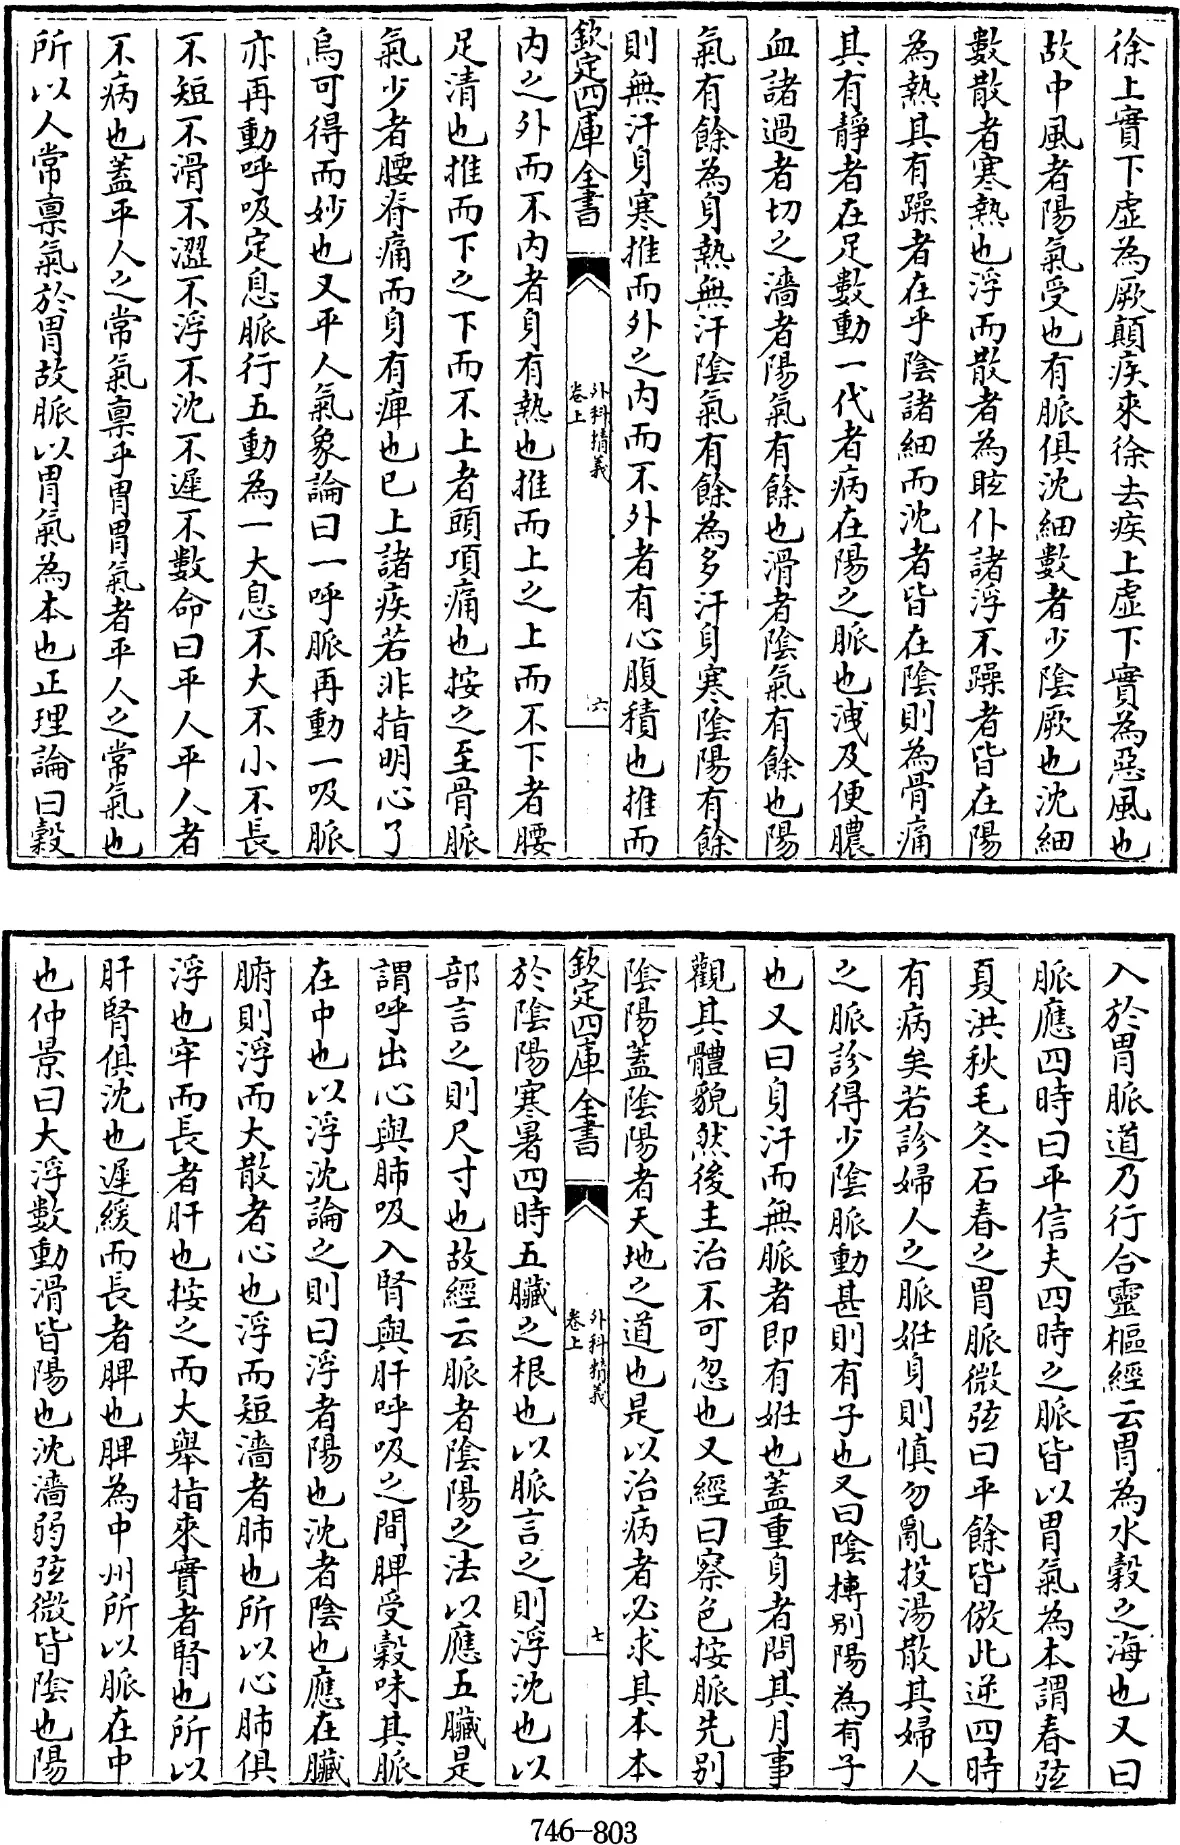 徐上實下虛為厥顛疾來徐去疾上虛下實為惡風也
故中風者陽氣受也有脈俱沈細數者少陰厥也沈細
數散者寒熱也浮而散者為眩仆諸浮不躁者皆在陽
為熱其有躁者在手陰諸細而沈者皆在陰則為骨痛
其有靜者在足數動一代者病在陽之脈也洩及便膿
血諸過者切之濇者陽氣有餘也滑者陰氣有餘也陽
氣有餘為身熱無汗陰氣有餘為多汗身寒陰陽有餘
則無汗身寒推而外之內而不外者有心腹積也推而
欽定四庫全書
外科精義
卷上
六
內之外而不內者身有熱也推而上之上而不下者腰
足清也推而下之下而不上者頭項痛也按之至骨脈
氣少者腰脊痛而身有痺也已上諸疾若非指明心了
烏可得而妙也又平人氣象論曰一呼脈再動一吸脈
亦再動呼吸定息脈行五動為一大息不大不小不長
不短不滑不澀不浮不沈不遲不數命曰平人平人者
不病也蓋平人之常氣稟乎胃胃氣者平人之常氣也
所以人常稟氣於胃故脈以胃氣為本也正理論曰穀
入於胃脈道乃行合靈樞經云胃為水穀之海也又曰
脈應四時曰平信夫四時之脈皆以胃氣為本謂春弦
夏洪秋毛冬石春之胃脈微弦曰平餘皆倣此逆四時
有病矣若診婦人之脈姙身則慎勿亂投湯散其婦人
之脈診得少陰脈動甚則有子也又曰陰搏別陽為有子
也又曰身汗而無脈者即有姙也蓋重身者問其月事
觀其體貌然後主治不可忽也又經曰察色按脈先別
陰陽蓋陰陽者天地之道也是以治病者必求其本本
欽定四庫全書
外科精義
卷上
七
於陰陽寒暑四時五臟之根也以脈言之則浮沈也以
部言之則尺寸也故經云脈者陰陽之法以應五臟是
謂呼出心與肺吸入腎與肝呼吸之間脾受穀味其脈
在中也以浮沈論之則曰浮者陽也沈者陰也應在臟
腑則浮而大散者心也浮而短濇者肺也所以心肺俱
浮也牢而長者肝也按之而大舉指來實者腎也所以
肝腎俱沈也遲緩而長者脾也脾為中州所以脈在中
也仲景曰大浮數動滑皆陽也沈濇弱弦微皆陰也陽
746-803